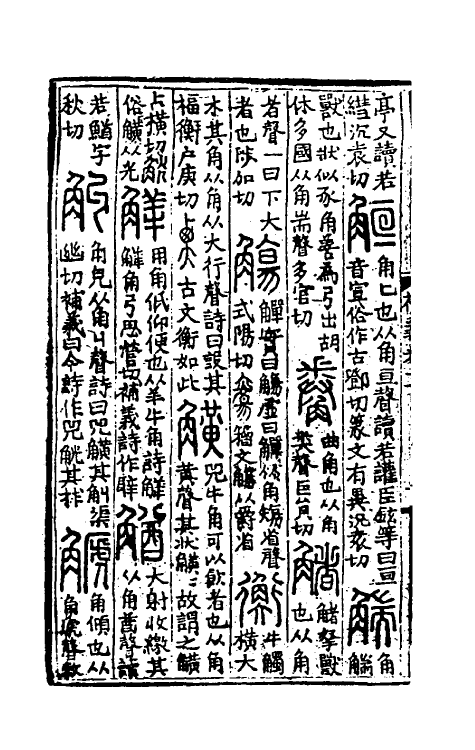 亭又讀若
纆沉袁切
䚙
角匕也从角亘聲讀若讙臣鉉等曰亘
音宣俗作古鄧切篆文有異況袁切
𧤗
角
𧤗
獸也狀似豕角善爲弓出胡
休多國从角耑聲多官切
觠
曲角也从角
𢍏聲巨員切
觰
觰拏獸
也从角
者聲一曰下大
者也陟加切
觴
觶實曰觴虛曰觶从角𥏻省聲
式陽切 籀文觴从爵省
衡
牛觸
橫大
木其角从角从大行聲詩曰設其
楅衡户庚切 古文衡如此
觵
兕牛角可以飲者也从角
黃聲其狀觵觵故謂之觵
古橫切
俗觵从光
觲
用角低仰便也从羊牛角詩觲
觲角弓息營切補義詩作騂
大射收繳具
从角酋聲讀
若鰌字
秋切
觓
角皃从角丩聲詩曰兕觵其觓渠
幽切補義曰今詩作兕觥其觩
䚦
角傾也从
角虒聲敕